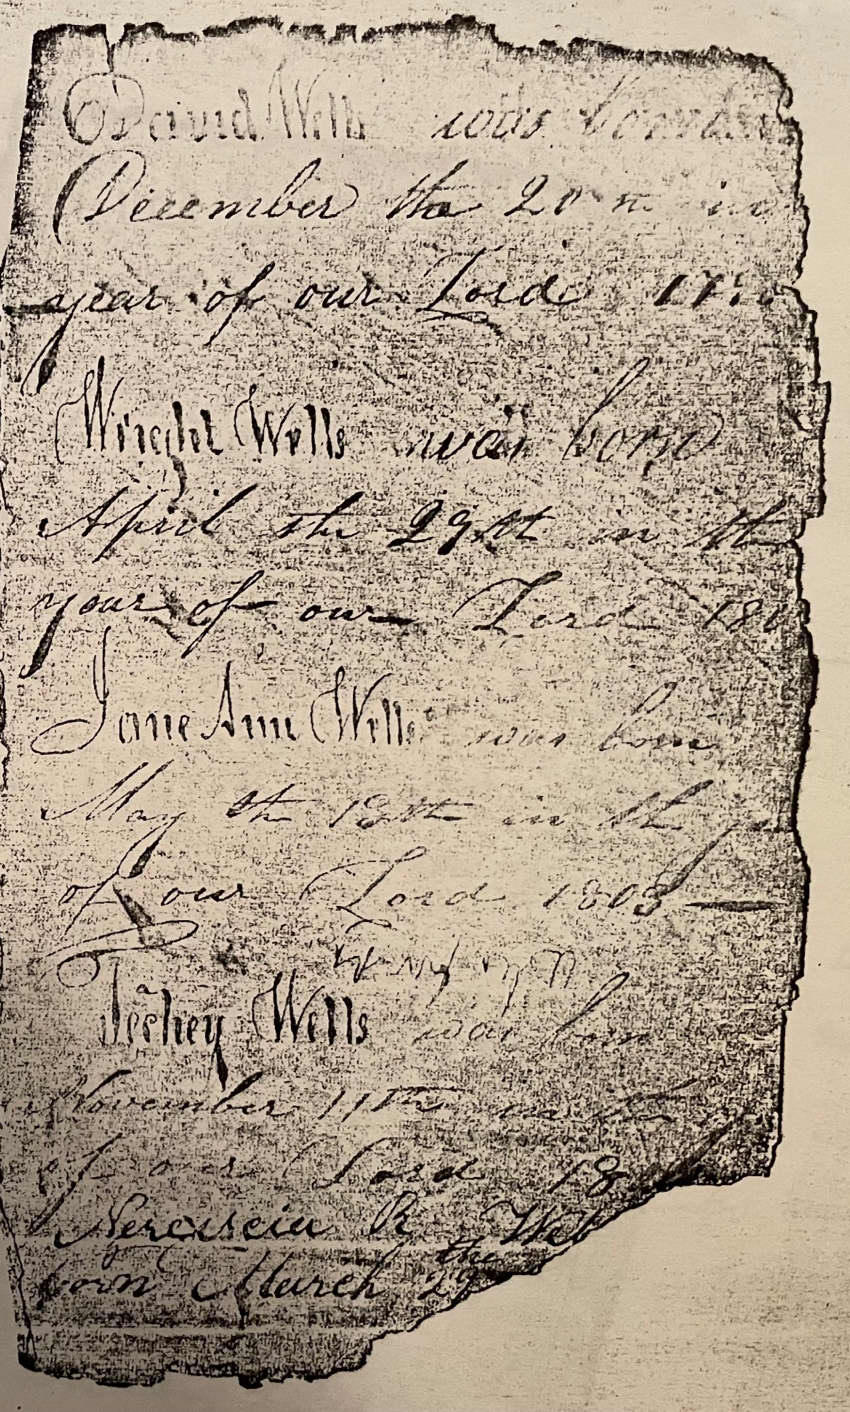 David Wells was born
December the 20 in
year of our Lord 17
Wright Wells was born
April the 29th in th
year of our Lord 180
Jane Ann Wells was born
May th 18th in th y
of our Lord 1803
Wells was born
November 11th in th
of our Lord 18
R Wel
born March the 29